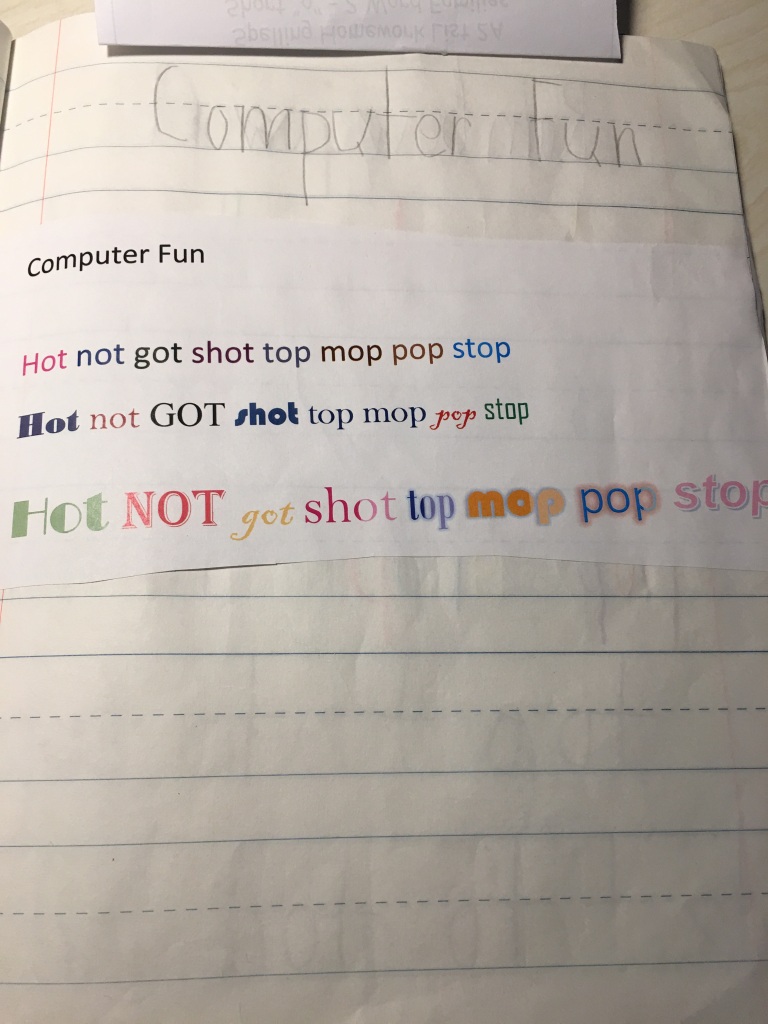 Short "o" - 2 Word Families
Spelling Homework List 2A
Computer Fun
Computer Fun
Hot not got shot top mop pop stop
Hot not GOT shot top mop pop stop
Hot NOT got shot top mop pop stop